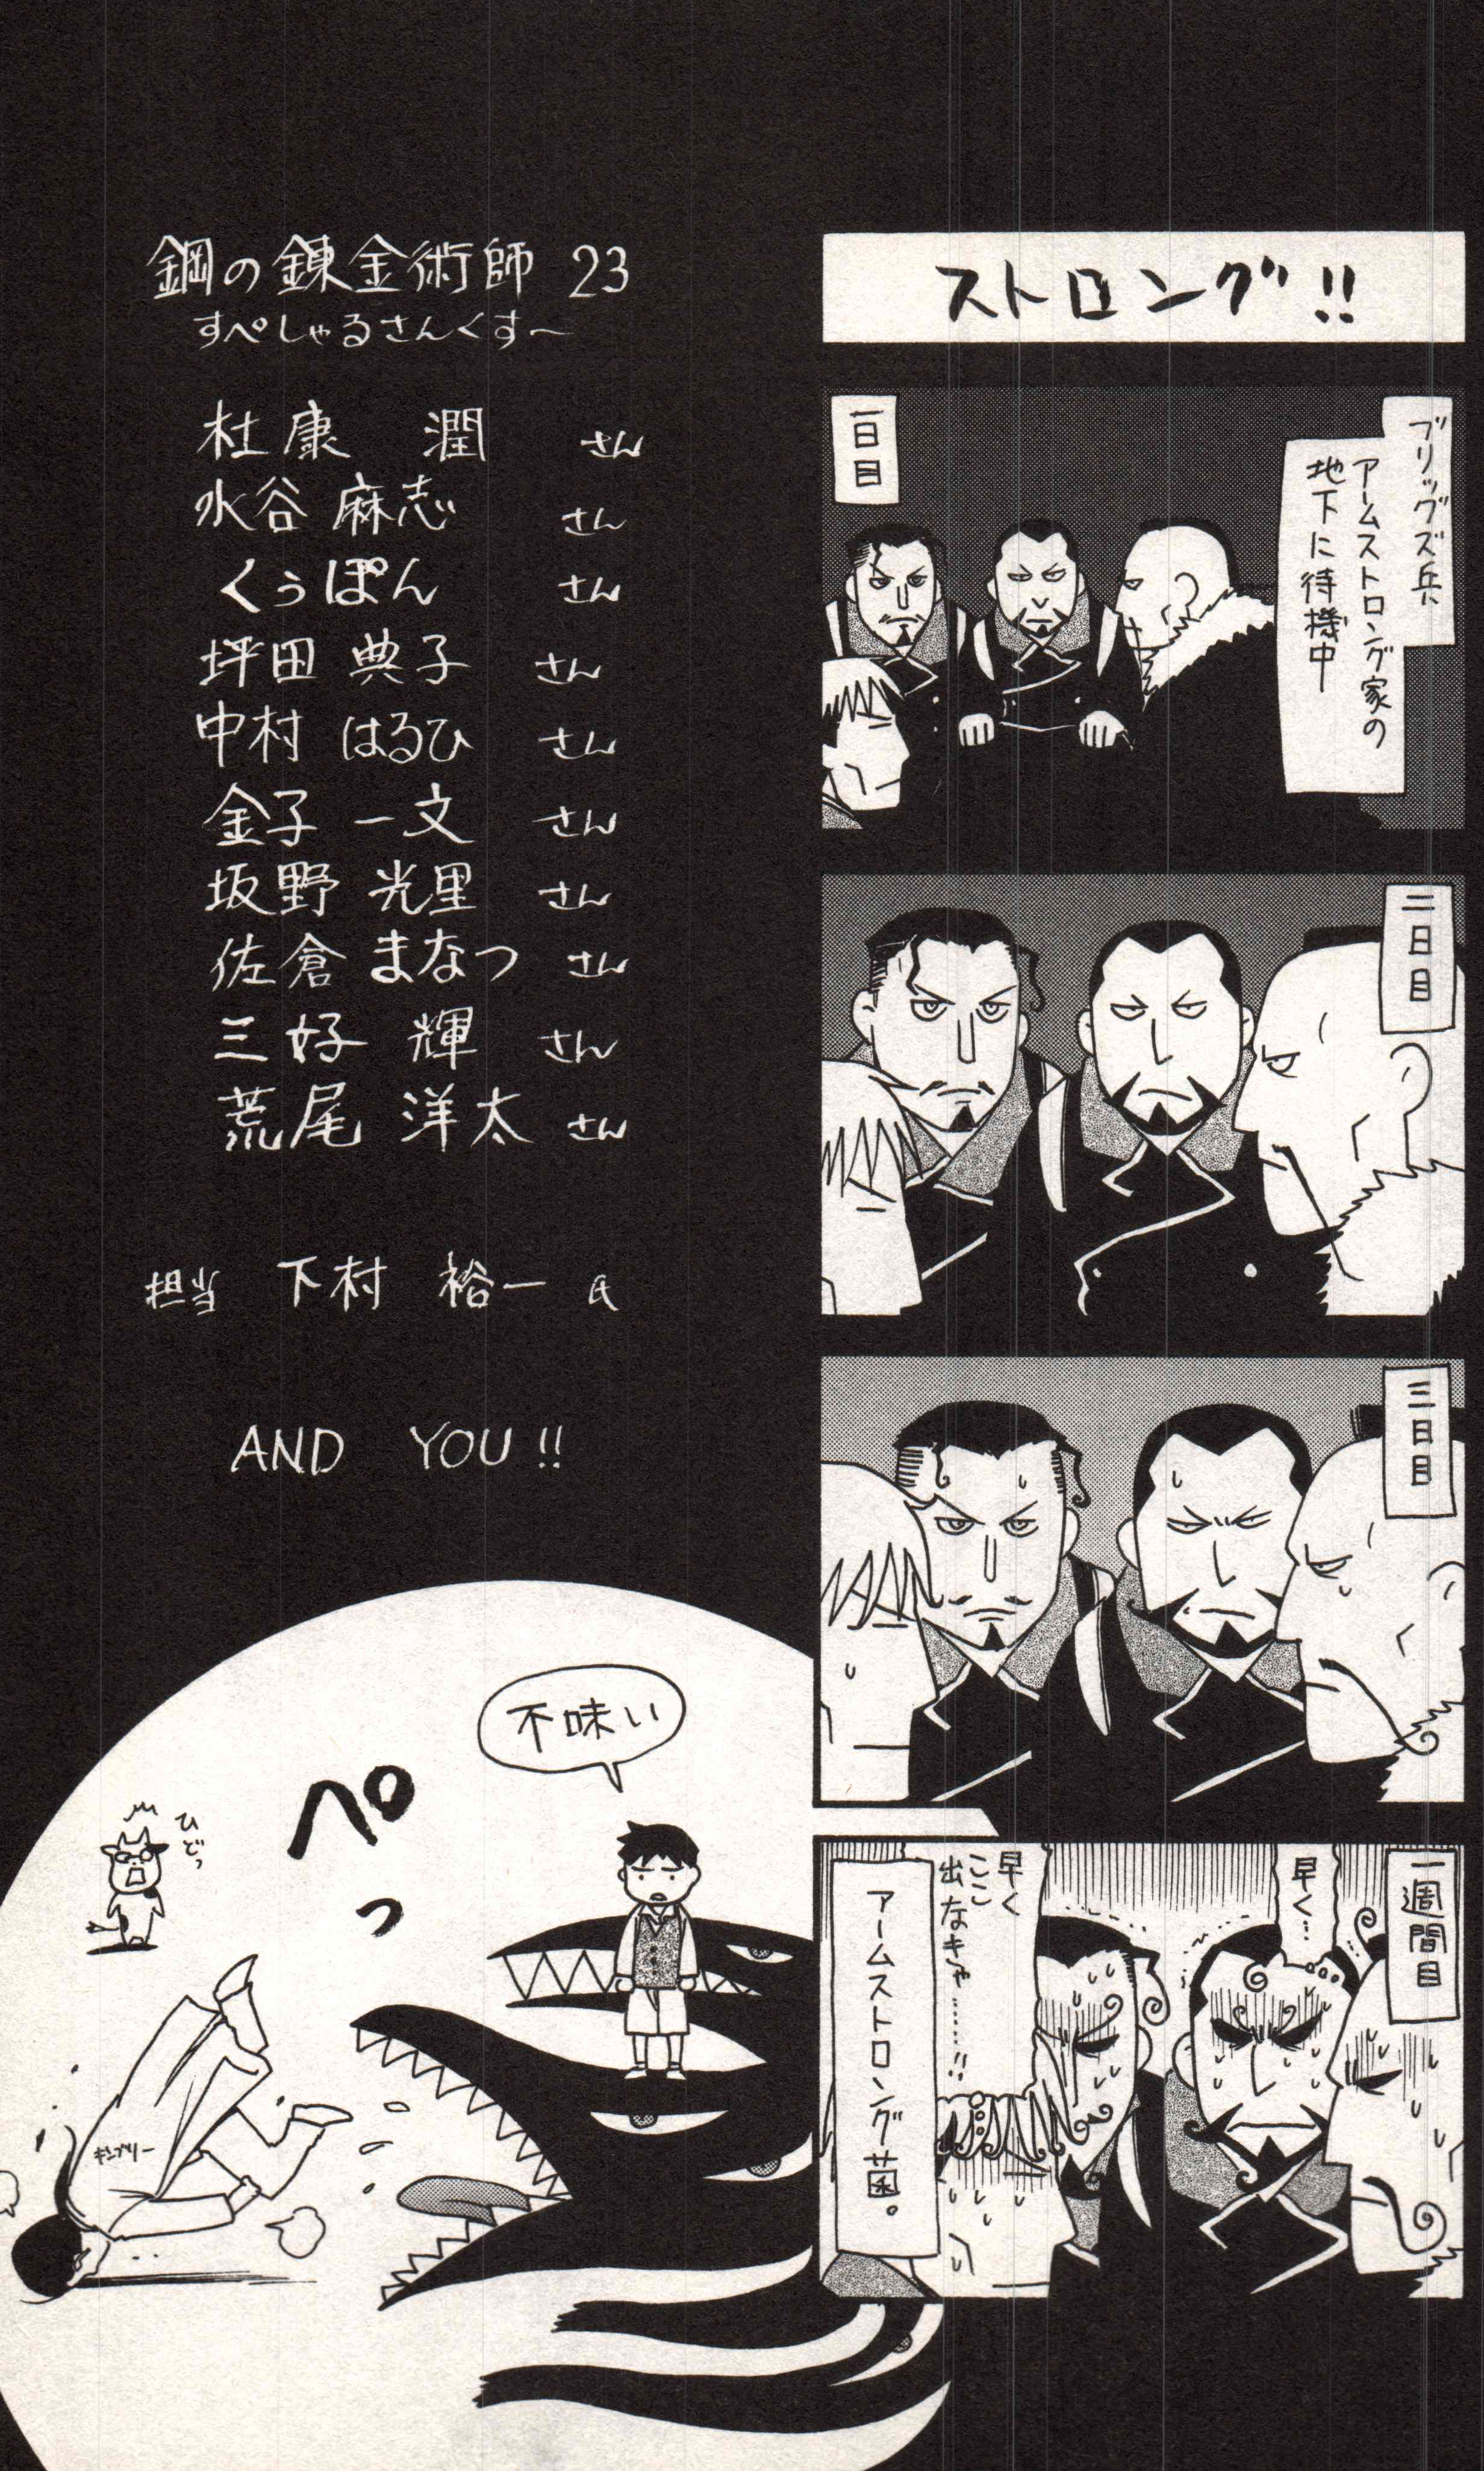 ストロング!!
ブリッグズ兵
アームストロング家の
地下に待機中
一日目
二日目
三日目
一週間目
早く…
早く
ここ
出なきゃ……!!
アームストロング菌。
鋼の錬金術師 23
すぺしゃるさんくす〜
杜康 潤 さん
水谷 麻志 さん
くぅぽん さん
坪田 典子 さん
中村 はるひ さん
金子 一文 さん
坂野 光里 さん
佐倉 まなつ さん
三好 輝 さん
荒尾 洋太 さん
担当 下村 裕一 氏
AND YOU!!
不味い
ペっ
ひどっ
キンブリー